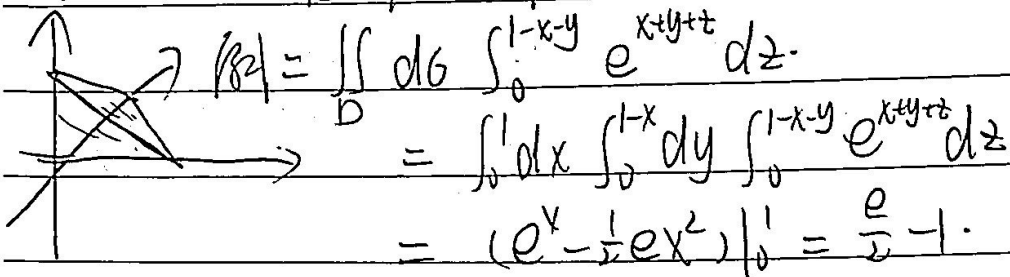 原式 = ∬_D dσ ∫_0^{1-x-y} e^{x+y+z} dz.
= ∫_0^1 dx ∫_0^{1-x} dy ∫_0^{1-x-y} e^{x+y+z} dz
= (e^x - 1/2 e x^2)|_0^1 = e/2 - 1.